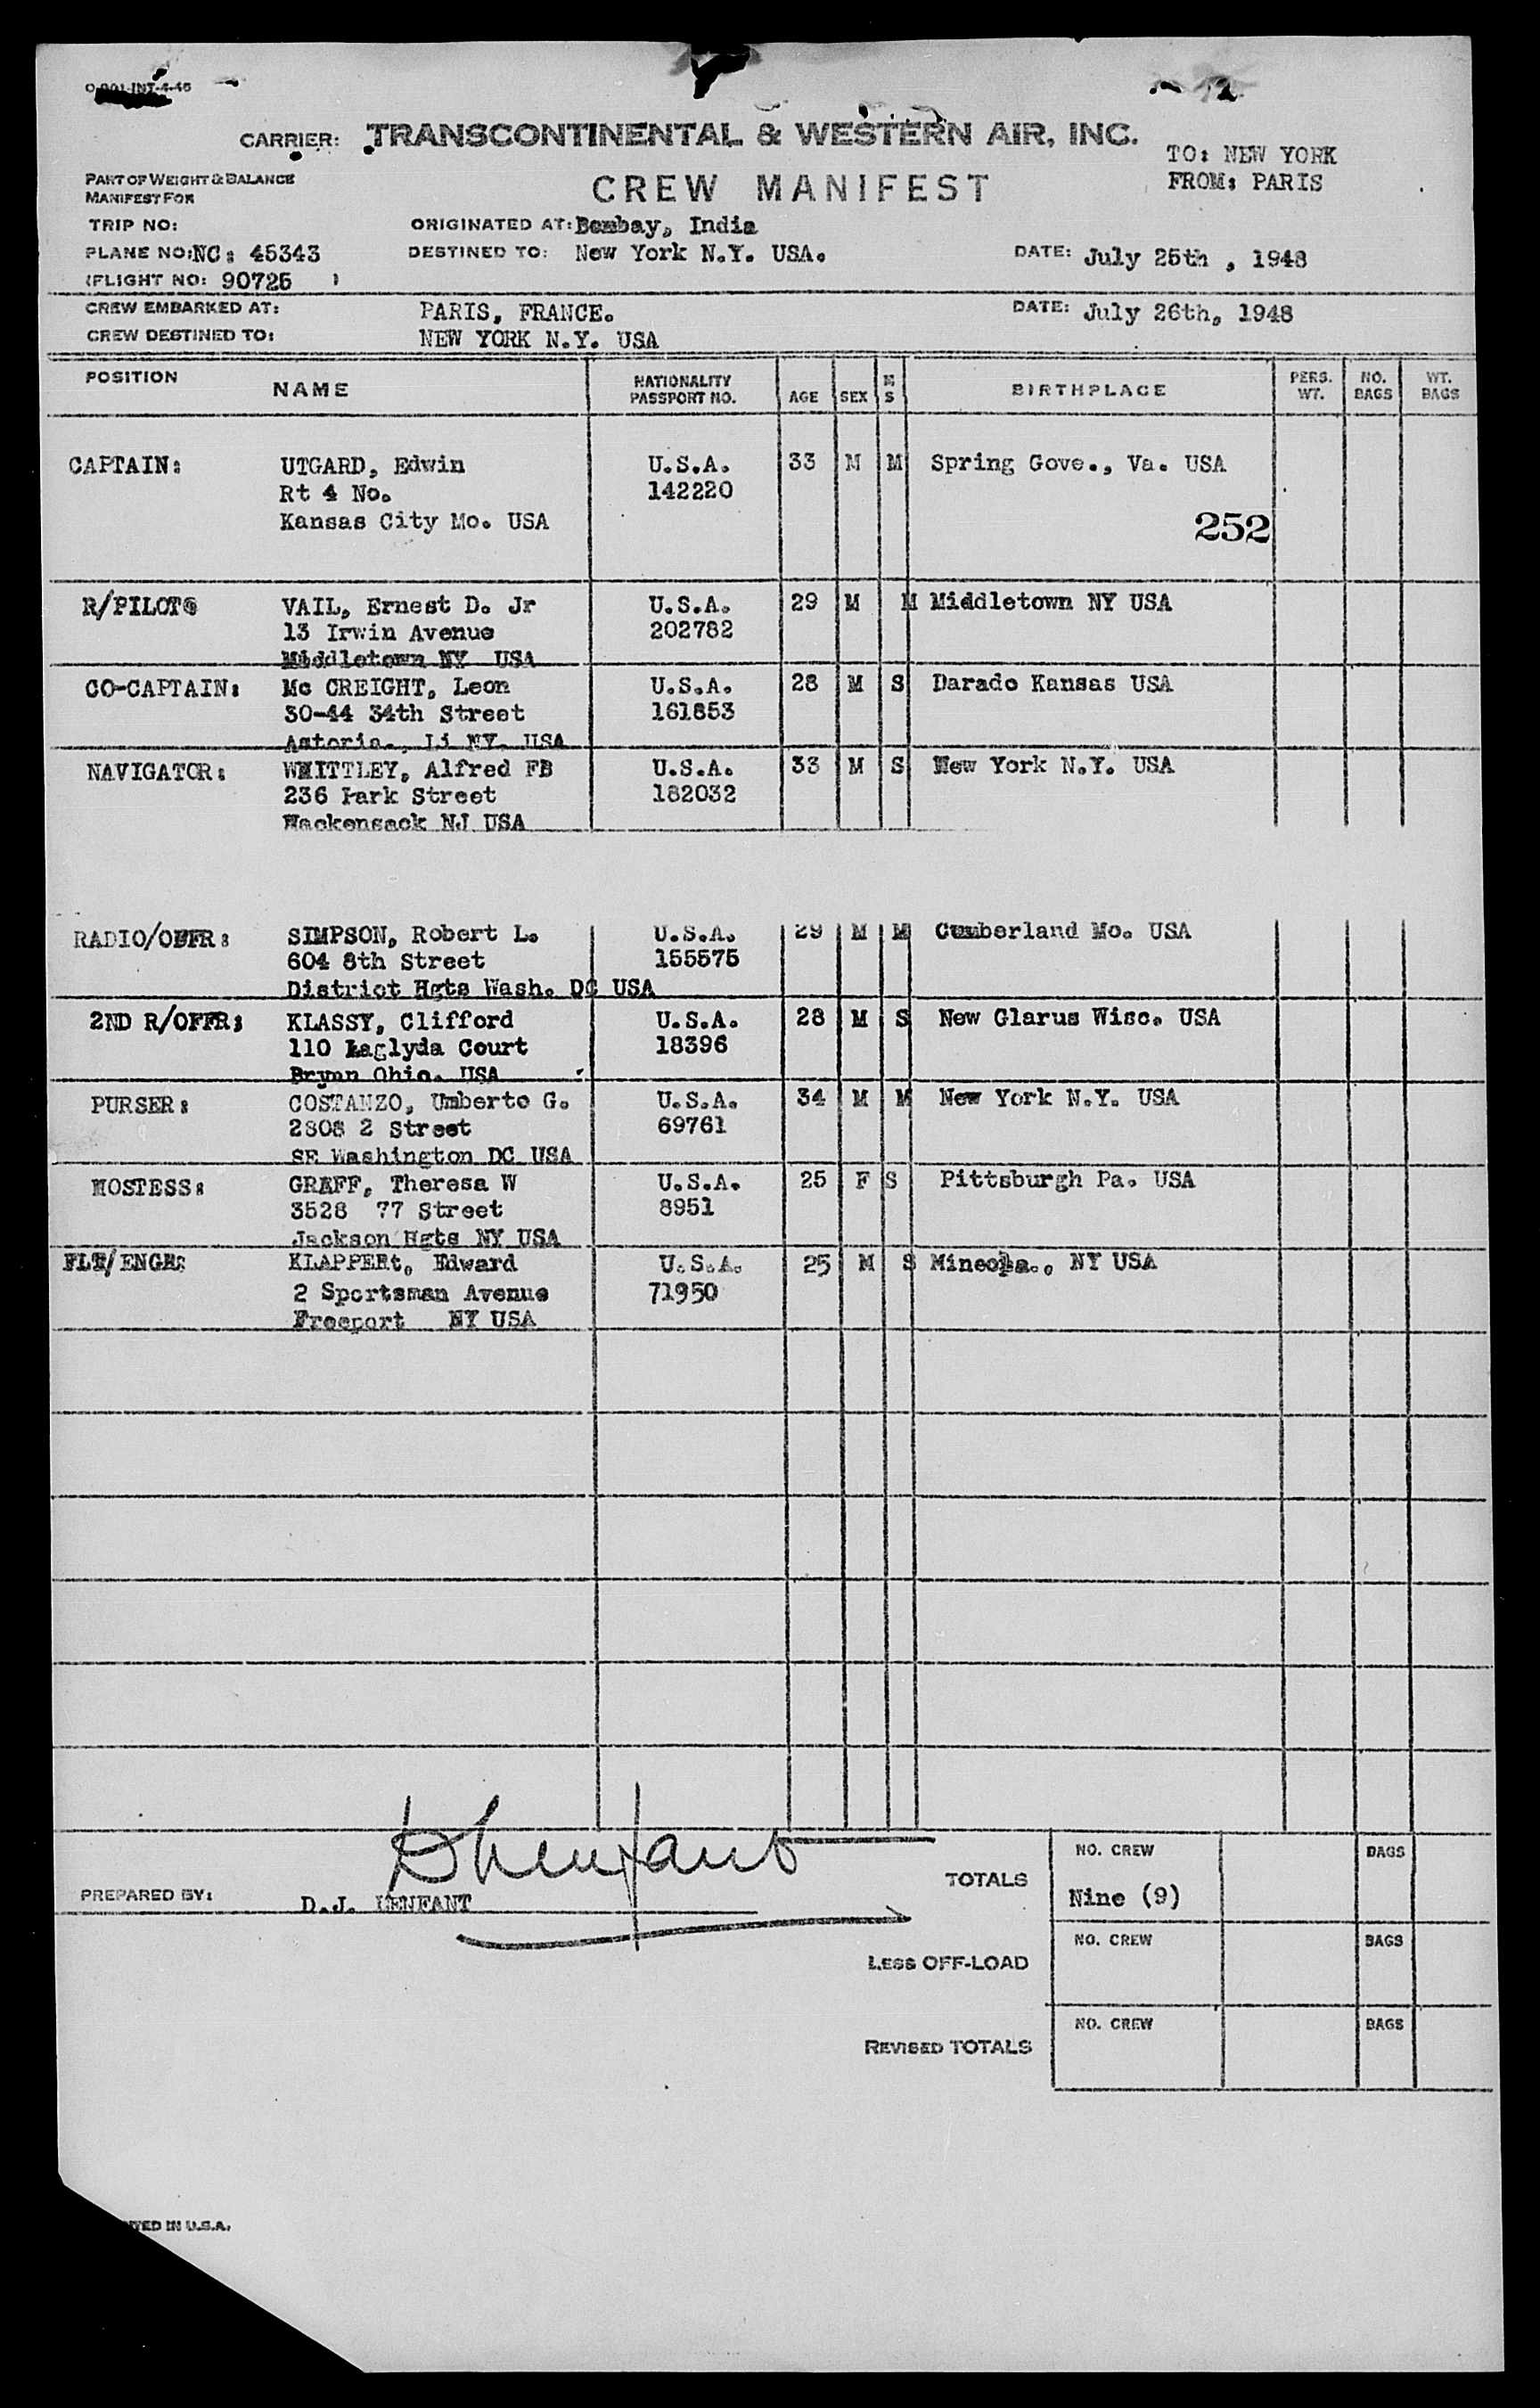 O-901-INT-4-46
CARRIER: TRANSCONTINENTAL & WESTERN AIR, INC.
TO: NEW YORK
FROM: PARIS
PART OF WEIGHT & BALANCE
MANIFEST FOR
CREW MANIFEST
TRIP NO: ORIGINATED AT: Bombay, India
PLANE NO: NC: 45343 DESTINED TO: New York N.Y. USA. DATE: July 25th , 1948
(FLIGHT NO: 90725 )
CREW EMBARKED AT: PARIS, FRANCE. DATE: July 26th, 1948
CREW DESTINED TO: NEW YORK N.Y. USA
POSITION NAME NATIONALITY PASSPORT NO. AGE SEX M S BIRTHPLACE PERS. WT. NO. BAGS WT. BAGS
CAPTAIN: UTGARD, Edwin U.S.A. 33 M M Spring Gove., Va. USA
Rt 4 No. 142220
Kansas City Mo. USA
252
R/PILOT@ VAIL, Ernest D. Jr U.S.A. 29 M M Middletown NY USA
13 Irwin Avenue 202782
Middletown NY USA
CO-CAPTAIN: Mc CREIGHT, Leon U.S.A. 28 M S Darado Kansas USA
30-44 34th Street 161853
Astoria., Li NY. USA
NAVIGATOR: WHITTLEY, Alfred FB U.S.A. 33 M S New York N.Y. USA
236 Park Street 182032
Hackensack NJ USA
RADIO/OFFR: SIMPSON, Robert L. U.S.A. 29 M M Cumberland Mo. USA
604 8th Street 155575
District Hgts Wash. DC USA
2ND R/OFFR; KLASSY, Clifford U.S.A. 28 M S New Glarus Wisc. USA
110 Laglyda Court 18396
Brymn Ohio. USA
PURSER: COSTANZO, Umberto G. U.S.A. 34 M M New York N.Y. USA
2808 2 Street 69761
SE Washington DC USA
HOSTESS: GRAFF, Theresa W U.S.A. 25 F S Pittsburgh Pa. USA
3528 77 Street 8951
Jackson Hgts NY USA
FLT/ENGR: KLAPPERt, Edward U.S.A. 25 M S Mineola., NY USA
2 Sportsman Avenue 71950
Freeport NY USA
DLenfant
PREPARED BY: D.J. LENFANT
TOTALS NO. CREW Nine (9) BAGS
LESS OFF-LOAD NO. CREW BAGS
REVISED TOTALS NO. CREW BAGS
TED IN U.S.A.